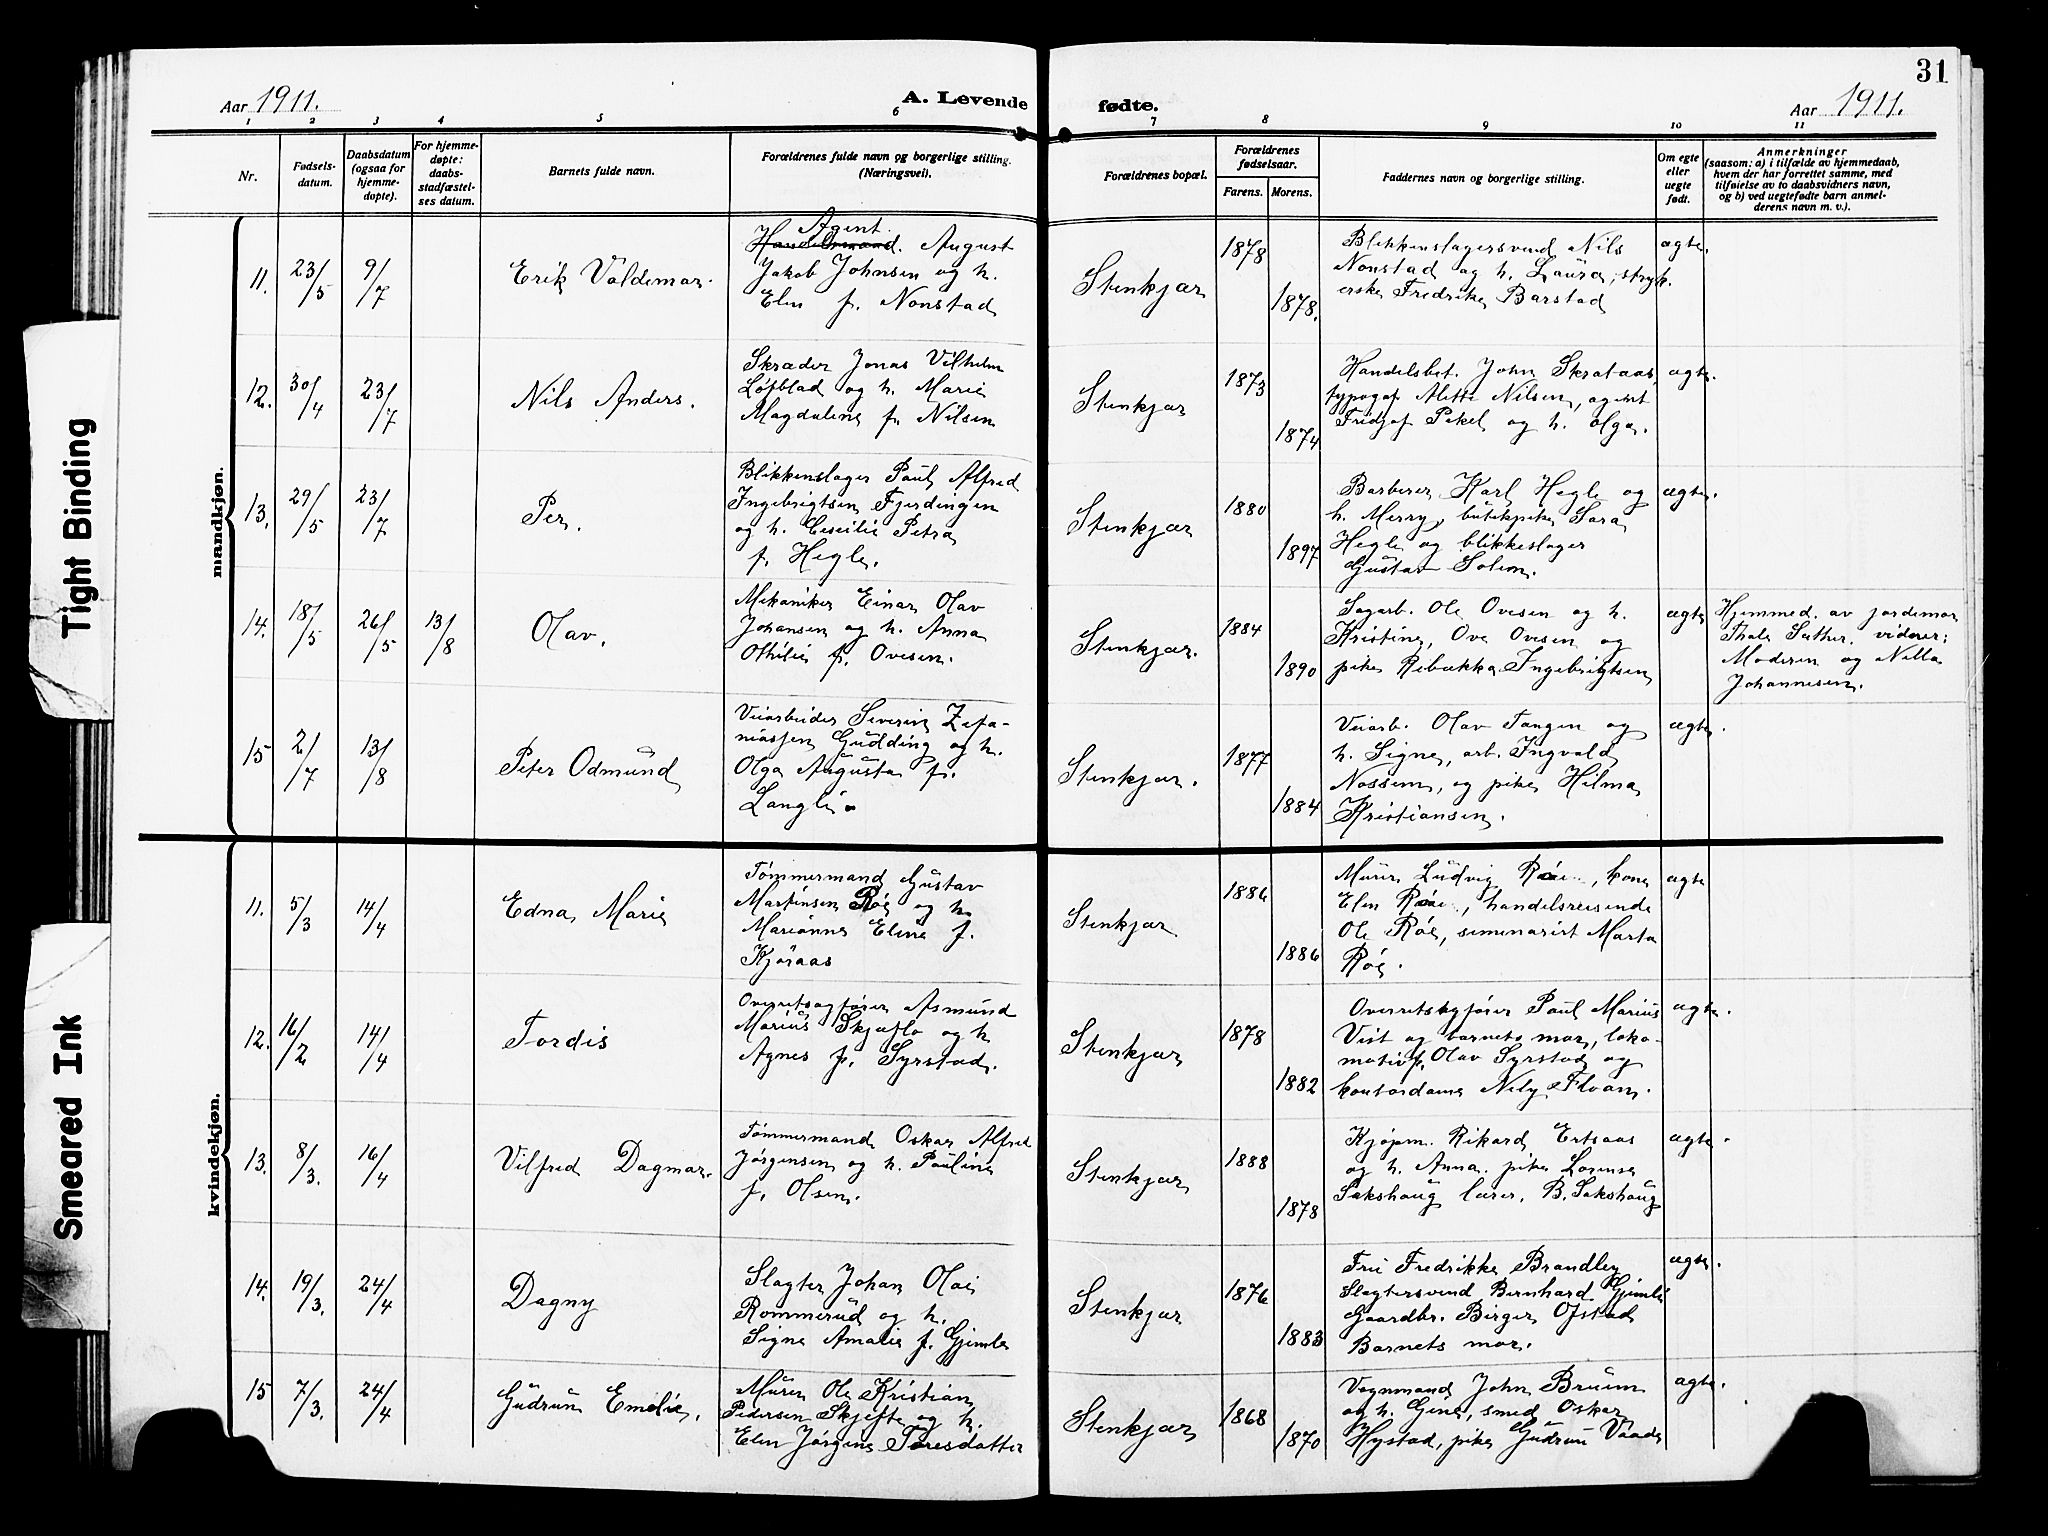 31
Aar 1911.
A. Levende fødte.
Aar 1911.
1 2 3 4 5 6 7 8 9 10 11
Nr.
Fødsels-
datum.
Daabsdatum
(ogsaa for
hjemme-
døpte).
For hjemme-
døpte:
daabs-
stadfæstel-
ses datum.
Barnets fulde navn.
Forældrenes fulde navn og borgerlige stilling.
(Næringsvei).
Forældrenes bopæl.
Forældrenes
fødselsaar.
Farens. Morens.
Faddernes navn og borgerlige stilling.
Om egte
eller
uegte
født.
Anmerkninger
(saasom: a) i tilfælde av hjemmedaab,
hvem der har forrettet samme, med
tilføielse av to daabsvidners navn,
og b) ved uegtefødte barn anmel-
derens navn m. v.).
mandkjøn.
11. 23/5 9/7
Erik Valdemar.
Agent
Handelsmand. August
Jakob Johnsen og h.
Elen f. Nonstad
Stenkjær
1878
1878.
Blikkenslagersvend Nils
Nonstad og h. Laura, stryk.
erske Fredrikke Barstad
ægte.
12. 30/4 23/7
Nils Anders.
Skræder Jonas Vilhelm
Løfblad og h. Marie
Magdalene f. Nilsen
Stenkjær
1873
1874
Handelsbet. John Skrataas,
typogaf Mette Nilsen, agent
Fridjof Pekel og h. Olga.
ægte.
13. 29/5 23/7
Per.
Blikkenslager Paul Alfred
Ingebrigtsen Fjerdingen
og h. Cecilie Petra
f. Hegle.
Stenkjær
1880
1897
Barberer Karl Hegle og
h. Merry, butikpike Sara
Hegle og blikkeslager
Gustav Solem.
ægte.
14. 18/5 26/5 13/8
Olav.
Mekaniker Einar Olav
Johansen og h. Anna
Othilie f. Ovesen.
Stenkjær.
1884
1890
Sagarb. Ole Ovesen og h.
Kristine, Ove Ovesen og
pike Rebekka Ingebrigtsen
ægte
Hjemmed. av jordemor
Thale Sæther. vidner:
Moderen og Nella
Johannesen.
15 2/7 13/8
Peter Odmund
Veiarbeider Severin Zefa-
niassen Gudding og h.
Olga Augusta f.
Langli.
Stenkjær.
1877
1884
Veiarb. Olav Tangen og
h. Signe, arb. Ingvald
Nossum, og pike Hilma
Kristiansen.
ægte.
kvindekjøn.
11. 5/3 14/4
Edna Marie
Tømmermand Gustav
Martinsen Røe og h.
Marianne Eline f.
Kjøraas
Stenkjær
1886
1886
Murer Ludvig Røe, kone
Elen Røe, handelsreisende
Ole Røe, seminarist Marta
Røe.
ægte
12. 16/2 14/4
Tordis
Overretssagfører Asmund
Marius Skjeflo og h
Agnes f. Syrstad.
Stenkjær
1878
1882
Overretssgfører Paul Marius
Vist og barnets mor, loko-
motivf. Olav Syrstad og
kontordame Nely Floan.
ægte.
13. 8/3. 16/4
Vilfred Dagmar.
Tømmermand Oskar Alfred
Jørgensen og h. Pauline
f. Olsen.
Stenkjær
1888
1878
Kjøpm. Rikard Ertsaas
og h. Anna. pike Lorense
Sakshaug lærer, B. Sakshaug
ægte.
14. 19/3. 24/4
Dagny
Slagter Johan Olai
Rommerud og h.
Signe Amalie f. Gjimle
Stenkjær
1876
1883
Fru Fredrikke Brandley
Slagtersvend Bernhard Gjimle
Gaardbr. Birger Ofstad
Barnets mor.
ægte.
15 7/3. 24/4
Gudrun Emelie.
Murer Ole Kristian
Pedersen Skjefte og h.
Elen Jørgine Toresdatter
Stenkjær
1868
1870
Vognmand John Bruem
og h. Gine, smed Oskar
Hystad, pike Gudrun Vaade
ægte.
Tight Binding
Smeared Ink